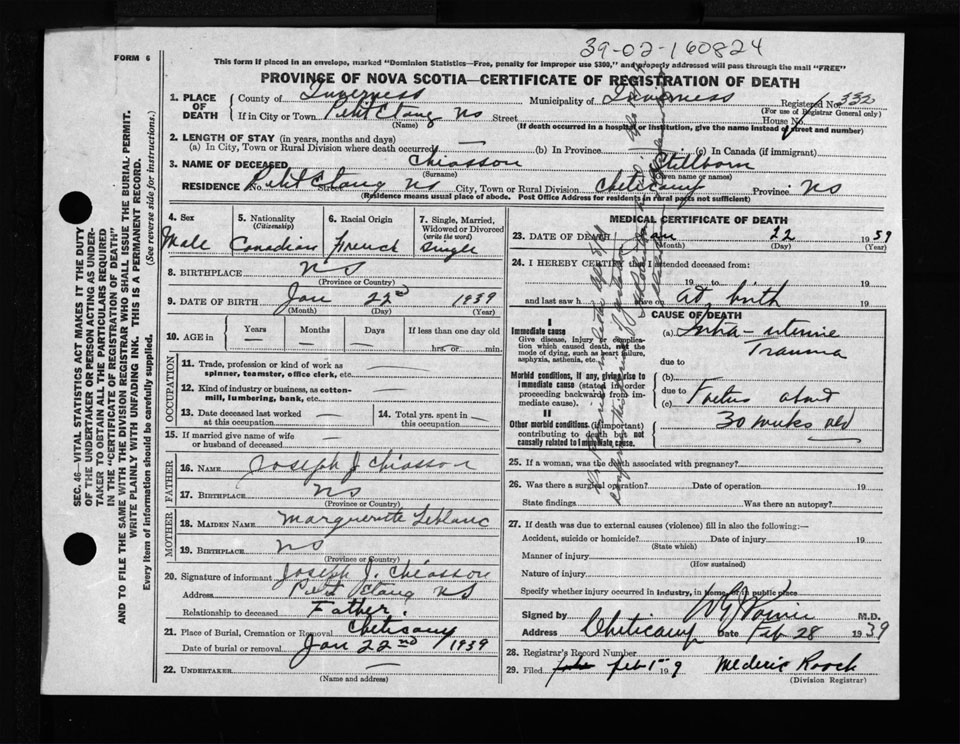 39-02-160824
FORM 6
This form if placed in an envelope, marked "Dominion Statistics—Free, penalty for improper use $300," and properly addressed will pass through the mail "FREE"
PROVINCE OF NOVA SCOTIA—CERTIFICATE OF REGISTRATION OF DEATH
1. PLACE OF DEATH
County of Inverness Municipality of Inverness Registered No. 332
(For use of Registrar General only)
If in City or Town Petit Etang NS Street House No.
(Name) (If death occurred in a hospital or institution, give the name instead of street and number)
2. LENGTH OF STAY (in years, months and days)
(a) In City, Town or Rural Division where death occurred — (b) In Province (c) In Canada (if immigrant)
3. NAME OF DECEASED Chiasson Stillborn
(Surname) (Given name or names)
RESIDENCE No. Petit Etang NS Street City, Town or Rural Division Cheticamp Province NS
(Residence means usual place of abode. Post Office Address for residents in rural parts not sufficient)
4. Sex
Male
5. Nationality
(Citizenship)
Canadian
6. Racial Origin
French
7. Single, Married, Widowed or Divorced
(write the word)
Single
8. BIRTHPLACE NS
(Province or Country)
9. DATE OF BIRTH Jan 22nd 1939
(Month) (Day) (Year)
10. AGE in Years Months Days If less than one day old
— — — hrs. or min.
OCCUPATION
11. Trade, profession or kind of work as spinner, teamster, office clerk, etc. —
12. Kind of industry or business, as cotton-mill, lumbering, bank, etc. —
13. Date deceased last worked at this occupation —
14. Total yrs. spent in this occupation —
15. If married give name of wife or husband of deceased —
FATHER
16. NAME Joseph J. Chiasson
17. BIRTHPLACE NS
(Province or Country)
MOTHER
18. MAIDEN NAME Marguerite Leblanc
19. BIRTHPLACE NS
(Province or Country)
20. Signature of informant Joseph J. Chiasson
Address Petit Etang NS
Relationship to deceased Father.
21. Place of Burial, Cremation or Removal Cheticamp
Date of burial or removal Jan 22nd 1939
22. UNDERTAKER —
(Name and address)
MEDICAL CERTIFICATE OF DEATH
23. DATE OF DEATH Jan 22 1939
(Month) (Day) (Year)
24. I HEREBY CERTIFY that I attended deceased from:
19 to 19
and last saw h alive on At birth 19
CAUSE OF DEATH
I
Immediate cause
Give disease, injury or complication which caused death, not the mode of dying, such as heart failure, asphyxia, asthenia, etc.
(a) Intra-uterine
Trauma
due to
Morbid conditions, if any, giving rise to immediate cause (stated in order proceeding backwards from immediate cause).
(b)
due to
(c) Foetus about
II
Other morbid conditions (if important) contributing to death but not causally related to immediate cause.
30 weeks old
25. If a woman, was the death associated with pregnancy?
26. Was there a surgical operation? Date of operation 19
State findings Was there an autopsy?
27. If death was due to external causes (violence) fill in also the following:—
Accident, suicide or homicide? Date of injury 19
(State which)
Manner of injury
(How sustained)
Nature of injury
Specify whether injury occurred in industry, in home, or in public place
Signed by M.D.
Address Cheticamp Date Feb 28 1939
28. Registrar's Record Number
29. Filed Feb 1st 19 9 Mederic Roach
(Division Registrar)
SEC. 46—VITAL STATISTICS ACT MAKES IT THE DUTY
OF THE UNDERTAKER OR PERSON ACTING AS UNDER-
TAKER TO OBTAIN ALL THE PARTICULARS REQUIRED
IN THE "CERTIFICATE OF REGISTRATION OF DEATH"
AND TO FILE THE SAME WITH THE DIVISION REGISTRAR WHO SHALL ISSUE THE BURIAL PERMIT.
WRITE PLAINLY WITH UNFADING INK. THIS IS A PERMANENT RECORD.
Every item of information should be carefully supplied. (See reverse side for instructions.)